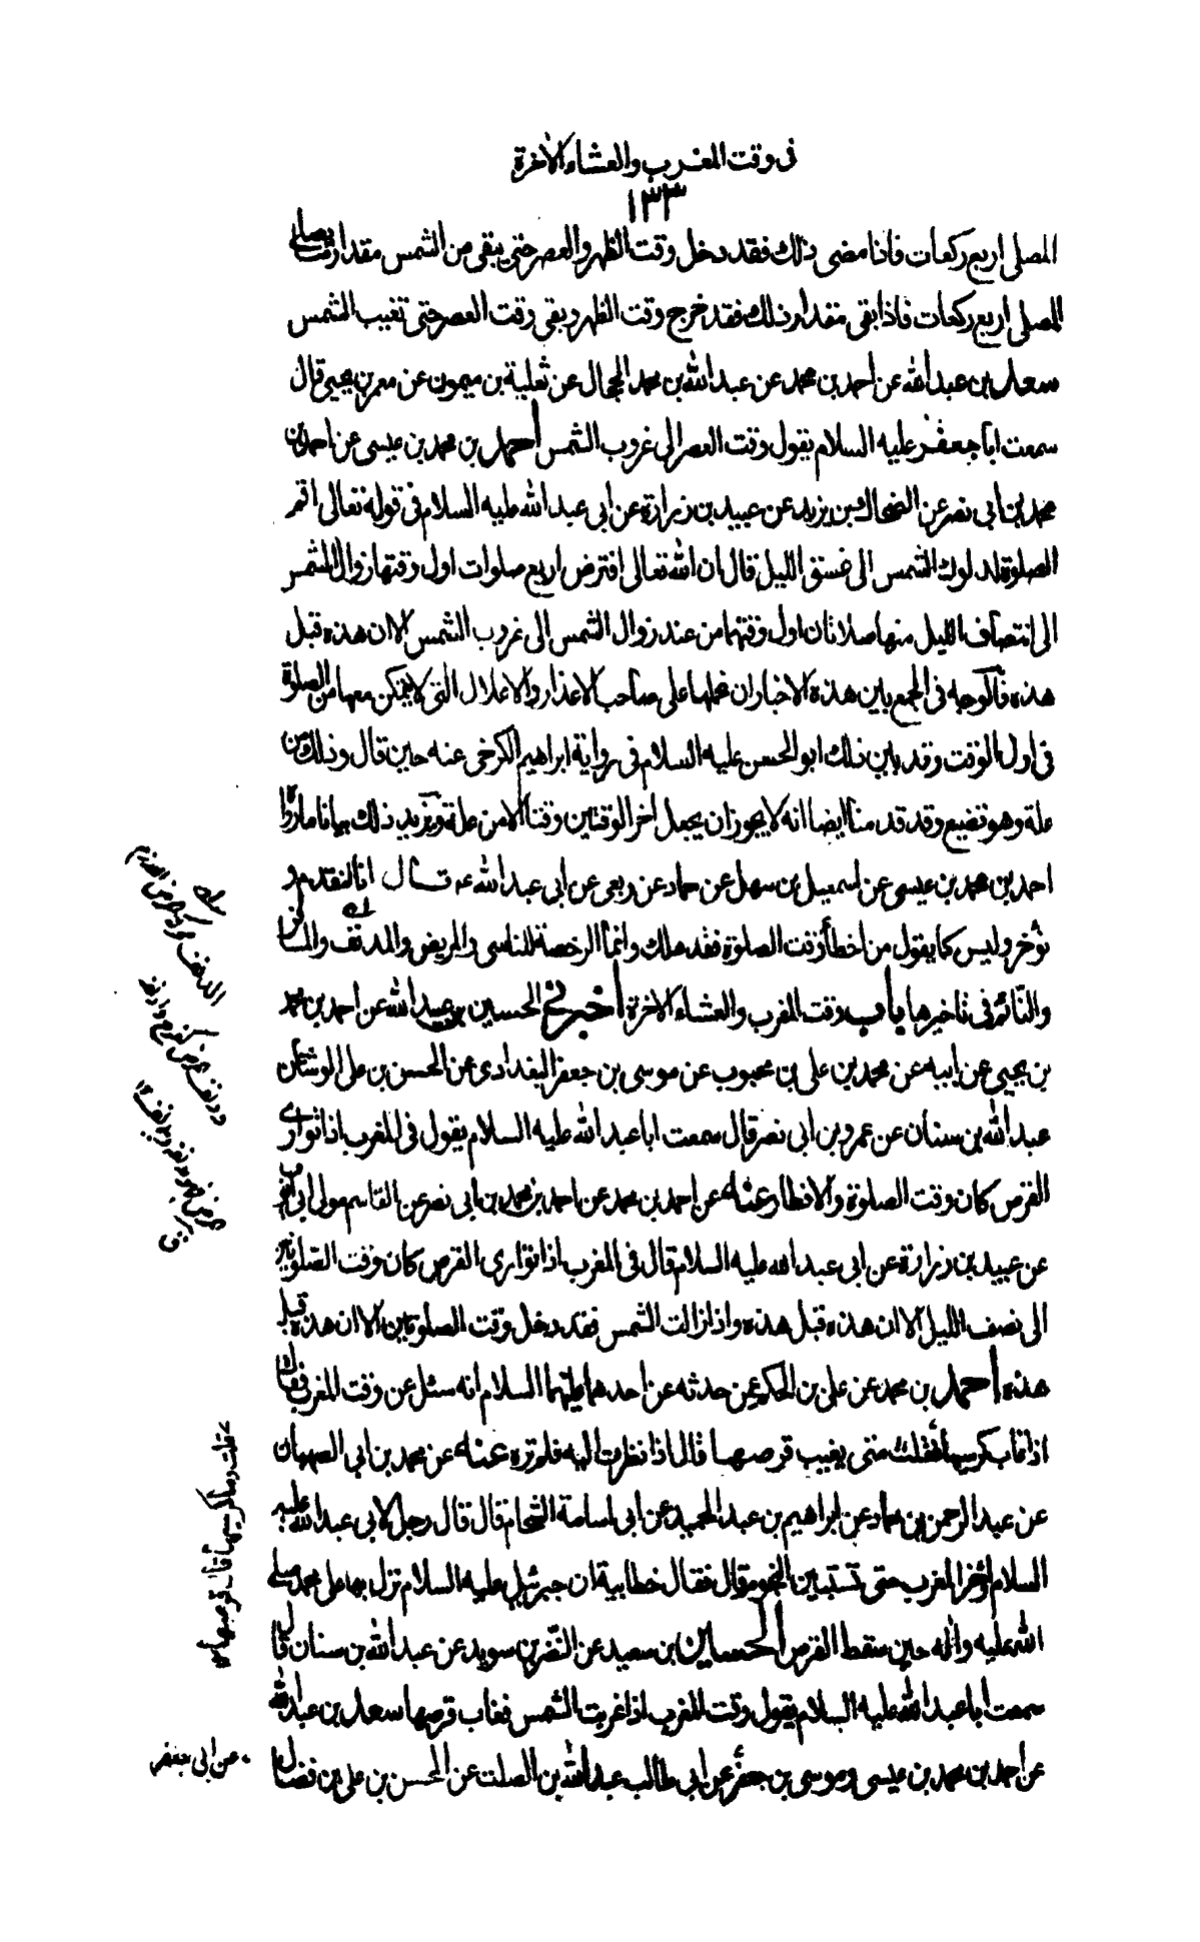 فى وقت المغرب والعشاء الاخرة
١٣٣
المصلى اربع ركعات فاذا مضى ذلك فقد دخل وقت الظهر والعصر حتى يبقى من الشمس مقدار ما يصلى
المصلى اربع ركعات فاذا بقى مقدار ذلك فقد خرج وقت الظهر وبقى وقت العصر حتى تغيب الشمس
سعد بن عبد الله عن احمد بن محمد عن عبد الله بن محمد الحجال عن ثعلبة بن ميمون عن معمر بن يحيى قال
سمعت ابا جعفر عليه السلام يقول وقت العصر الى غروب الشمس احمد بن محمد بن عيسى عن احمد بن
محمد بن ابى نصر عن الضحاك بن يزيد عن عبيد بن زرارة عن ابى عبد الله عليه السلام فى قوله تعالى اقم
الصلوة لدلوك الشمس الى غسق الليل قال ان الله تعالى افترض اربع صلوات اول وقتها زوال الشمس
الى انتصاف الليل منها صلاتان اول وقتهما من عند زوال الشمس الى غروب الشمس الا ان هذه قبل
هذه فالوجه فى الجمع بين هذه الاخبار ان نحملها على صاحب الاعذار والاعلال التى لا يتمكن معها من الصلوة
فى اول الوقت وقد بين ذلك ابو الحسن عليه السلام فى رواية ابراهيم الكرخى عنه حين قال وذلك من
علة وهو تضييع وقد قدمنا ايضا انه لا يجوز ان يجعل اخر الوقتين وقتا الا من علة ويزيد ذلك بيانا ما رواه
احمد بن محمد بن عيسى عن اسمعيل بن سهل عن حماد عن ربعى عن ابى عبد الله ع قال انا لنقدم و
نؤخر وليس كما يقول من اخطأ وقت الصلوة فقد هلك وانما الرخصة للناسى والمريض والمدنف والمسافر
والنائم فى تاخيرها باب وقت المغرب والعشاء الاخرة اخبرنى الحسين بن عبيد الله عن احمد بن محمد
بن يحيى عن ابيه عن محمد بن على بن محبوب عن موسى بن جعفر البغدادى عن الحسن بن على الوشا عن
عبد الله بن سنان عن عمرو بن ابى نصر قال سمعت ابا عبد الله عليه السلام يقول فى المغرب اذا توارى
القرص كان وقت الصلوة والافطار عنه عن احمد بن محمد عن احمد بن محمد بن ابى نصر عن القاسم مولى ابى ايوب
عن عبيد بن زرارة عن ابى عبد الله عليه السلام قال فى المغرب اذا توارى القرص كان وقت الصلوتين
الى نصف الليل الا ان هذه قبل هذه واذا زالت الشمس فقد دخل وقت الصلوتين الا ان هذه قبل
هذه احمد بن محمد عن على بن الحكم عمن حدثه عن احدهما عليهما السلام انه سئل عن وقت المغرب فقال
اذا غاب كرسيها فقلت متى يغيب قرصها قال اذا نظرت اليه فلم تره عنه عن محمد بن ابى الصهبان
عن عبد الرحمن بن حماد عن ابراهيم بن عبد الحميد عن ابى اسامة الشحام قال قال رجل لابى عبد الله عليه
السلام اؤخر المغرب حتى تستبين النجوم قال فقال خطابية ان جبرئيل عليه السلام نزل بها على محمد صلى
الله عليه واله حين سقط القرص الحسين بن سعيد عن النضر بن سويد عن عبد الله بن سنان قال
سمعت ابا عبد الله عليه السلام يقول وقت المغرب اذا غربت الشمس فغاب قرصها سعد بن عبد الله
عن احمد بن محمد بن عيسى وموسى بن جعفر عن ابى طالب عبد الله بن الصلت عن الحسن بن على بن فضال
قلت وما كرسيها قال قرصها
عن ابى جعفر